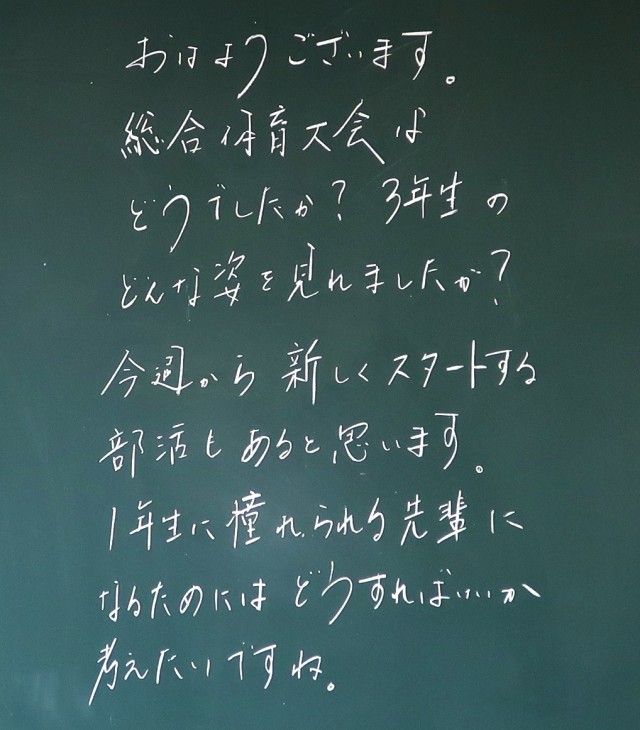 おはようございます。
総合体育大会は
どうでしたか？3年生の
どんな姿を見れましたが？
今週から新しくスタートする
部活もあると思います。
1年生に憧れられる先輩に
なるためにはどうすればいいか
考えたいですね。